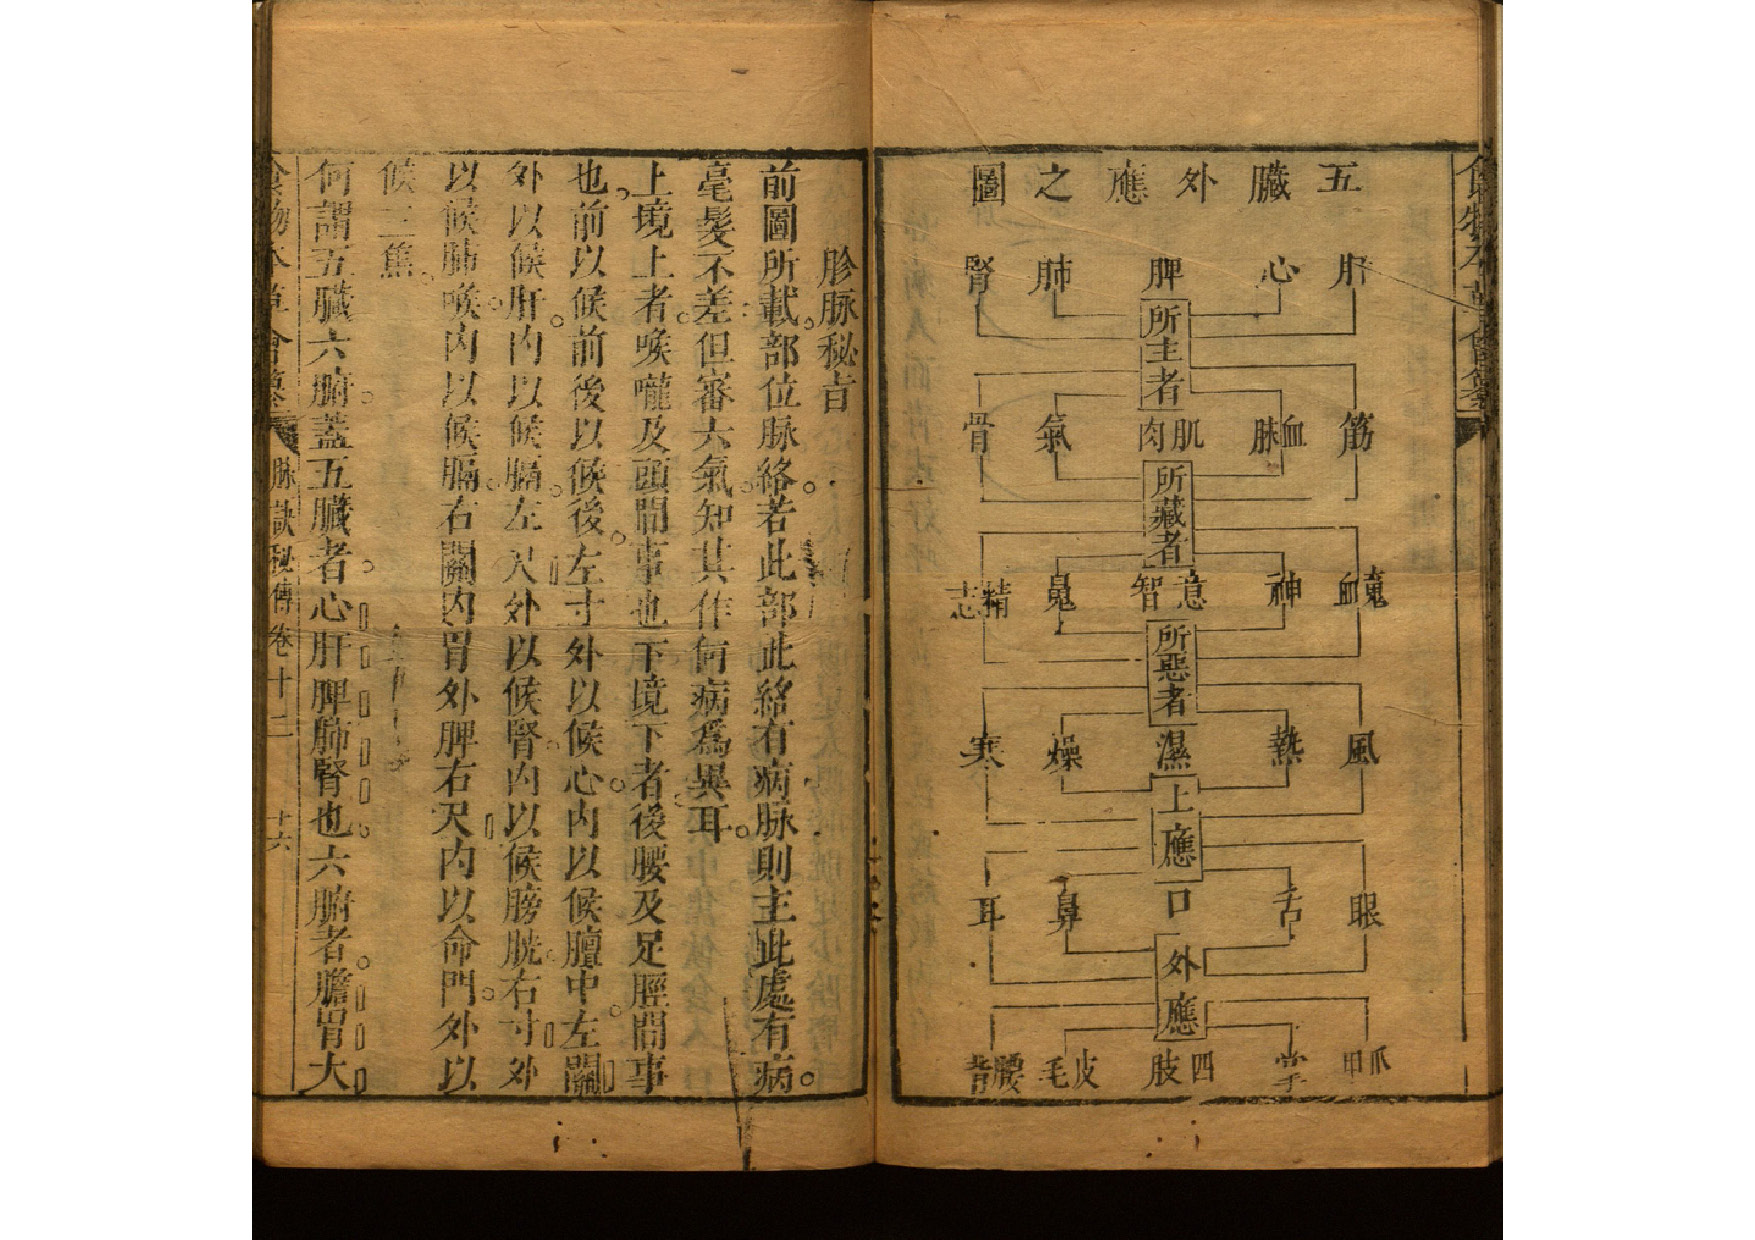 食物本草會纂
五臟外應之圖
肝 心 脾 肺 腎
所主者
筋 血脉 肌肉 氣 骨
所藏者
魂血 神 意智 魄 精志
所惡者
風 熱 濕 燥 寒
上應
眼 舌 口 鼻 耳
外應
爪甲 掌 四肢 皮毛 腰背
胗脉秘旨
前圖所載部位脉絡若此部此絡有病脉則主此處有病
毫髮不差但審六氣知其作何病爲異耳
上境上者喉嚨及頭間事也下境下者後腰及足脛間事
也前以候前後以候後左寸外以候心內以候膻中左關
外以候肝內以候膈左尺外以候腎內以候膀胱右寸外
以候肺喉內以候膈右關內胃外脾右尺內以命門外以
候三焦
何謂五臟六腑蓋五臟者心肝脾肺腎也六腑者膽胃大
食物本草會纂 脉訣秘傳 卷十二 十六